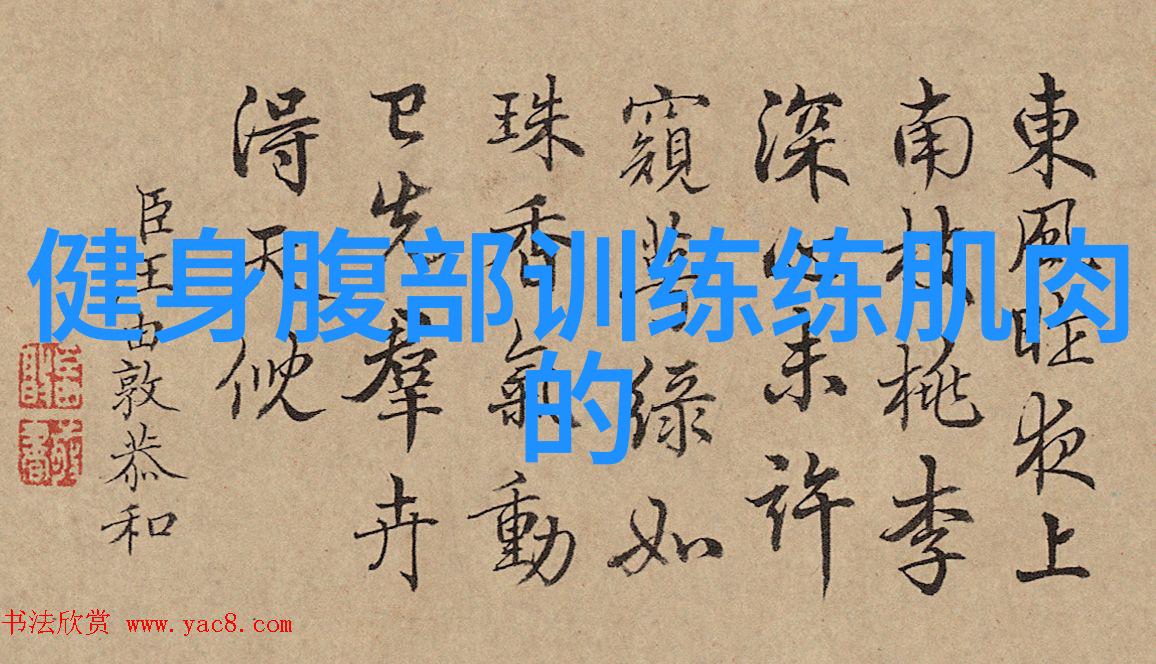 健身腹部训练练肌肉
的
東風昨夜上
南枝桃李
深心未許
窺萼綠如
珠香氣動
已先羣卉
得天倪
臣汪由敦恭和
书法欣赏 www.yac8.com